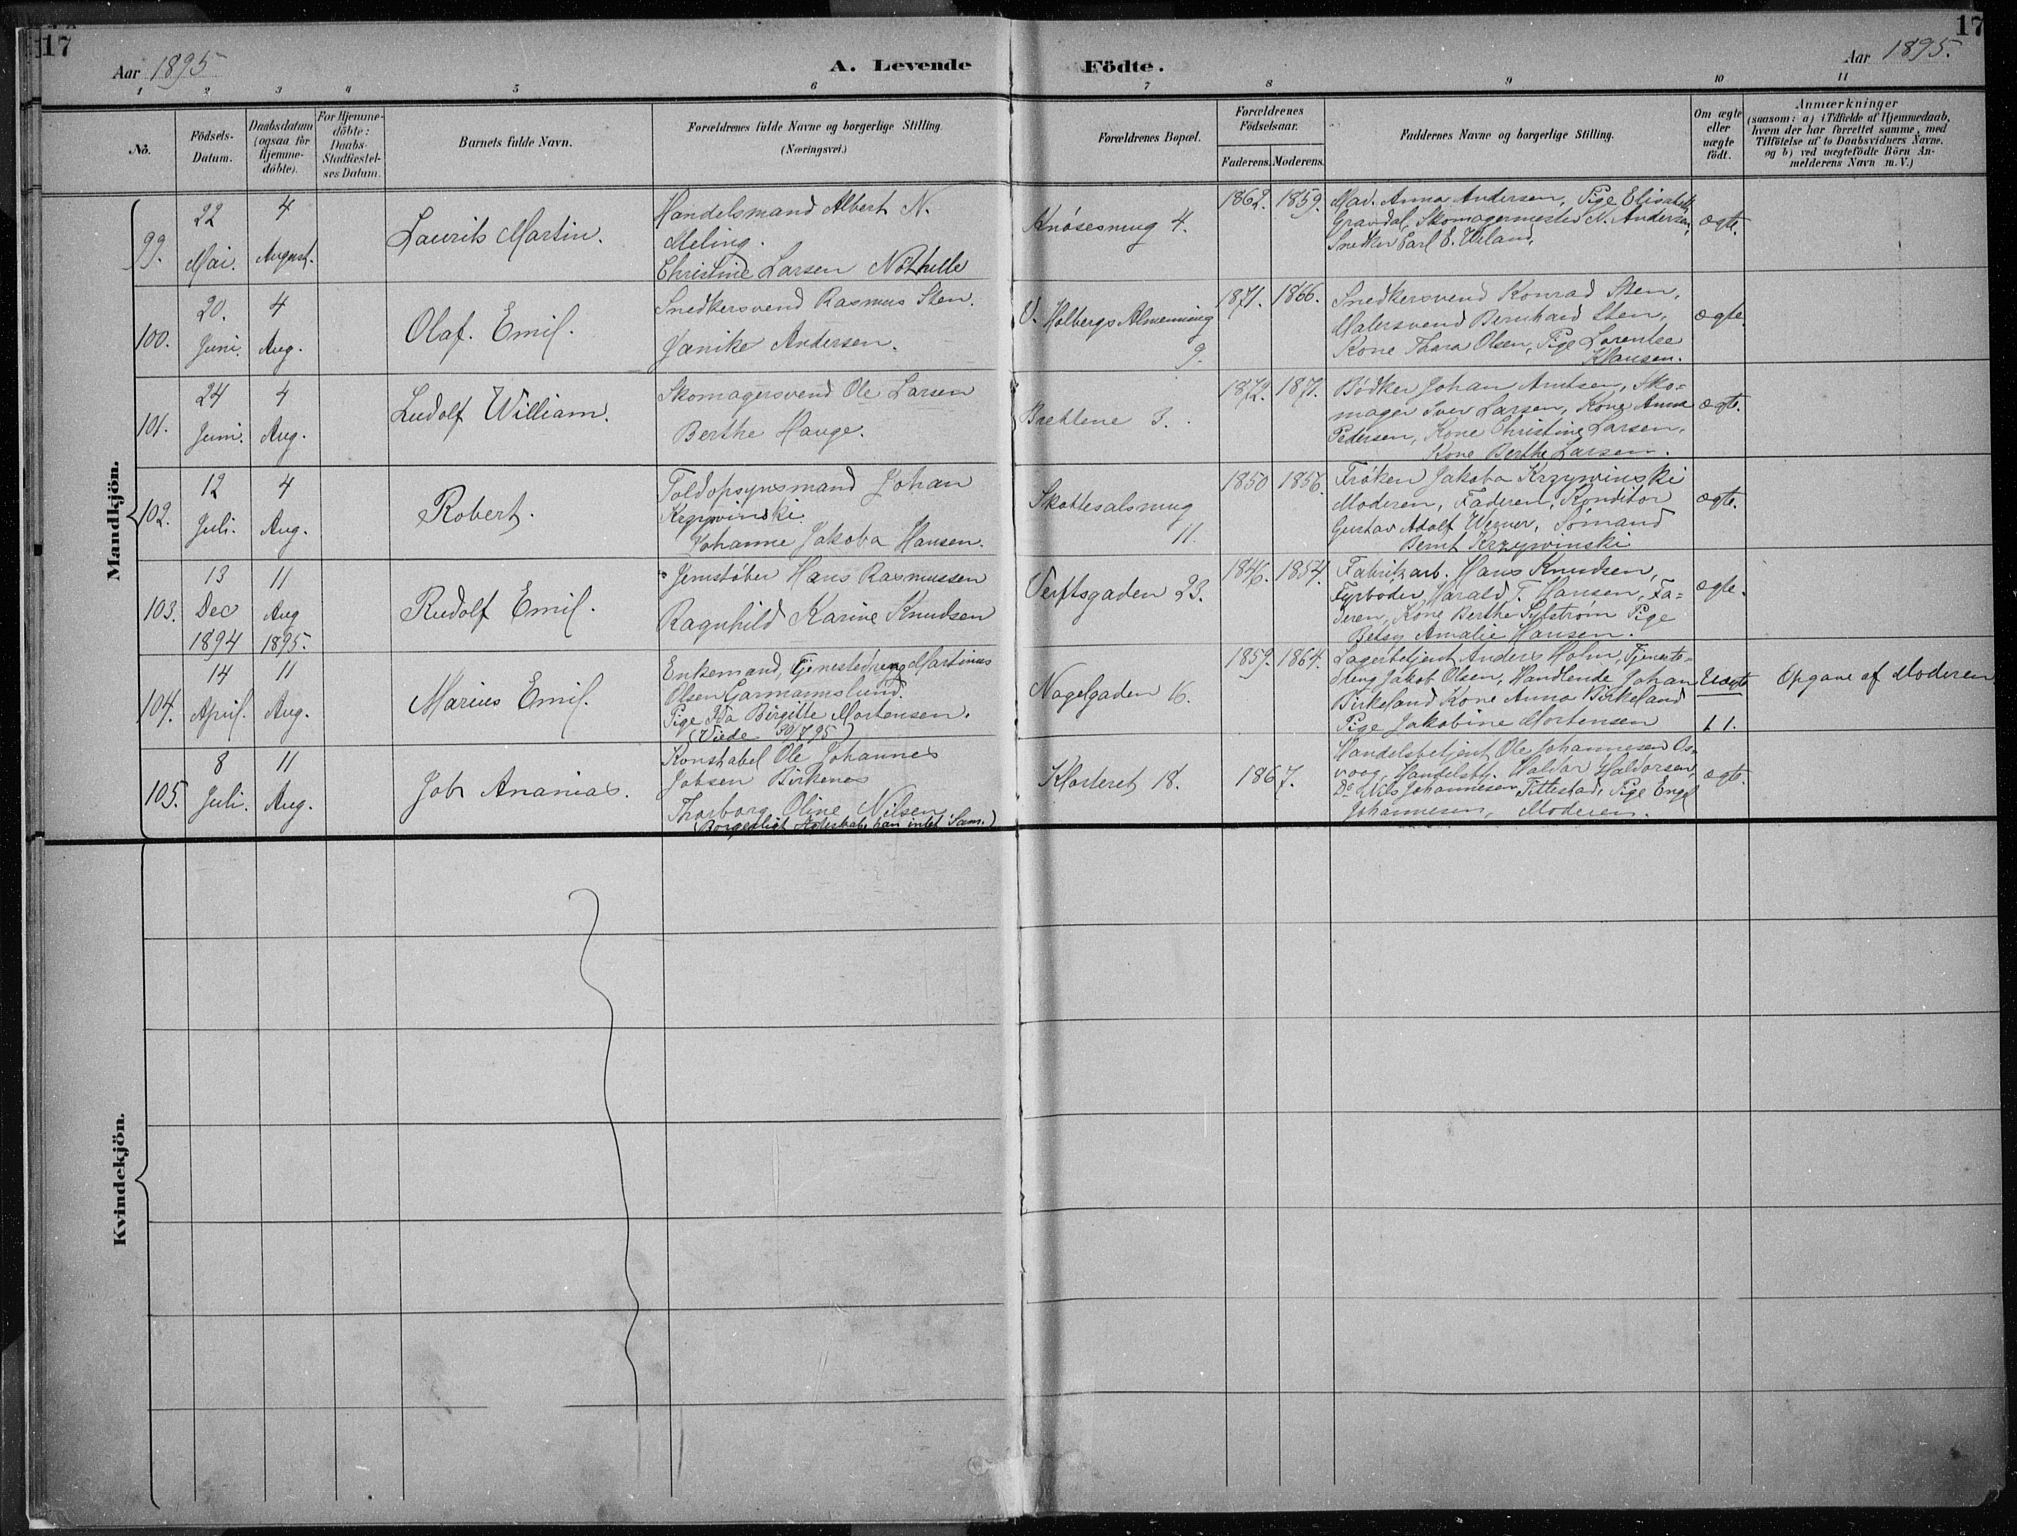 17
17
Aar 1895
A. Levende Födte.
Aar 1895.
1 2 3 4 5 6 7 8 9 10 11
No.
Födsels-Datum.
Daabsdatum (ogsaa for Hjemme-döbte).
For Hjemme-döbte: Daabs-Stadfæstel-ses Datum.
Barnets fulde Navn.
Forældrenes fulde Navne og borgerlige Stilling.
(Næringsvei.)
Forældrenes Bopæl.
Forældrenes Födselsaar.
Faderens. Moderens.
Faddernes Navne og borgerlige Stilling.
Om ægte eller uægte födt.
Anmærkninger
(saasom: a) i Tilfælde af Hjemmedaab,
hvem der har forrettet samme, med
Tilföielse af to Daabsvidners Navne.
og b) ved uægtefödte Börn An-
melderens Navn m. V.)
Mandkjön.
99.
22 Mai.
4 August.
Laurits Martin.
Handelsmand Albert N.
Meling.
Christine Larsen
Knøsesmug 4.
1862. 1859.
Mad. Anna Andersen, Pige Elisabeth
Gravdal, Skomagermester N. Andersen,
Snedker Carl E. Wiland,
ægte.
100.
20. Juni.
4 Aug.
Olaf Emil.
Snedkersvend Rasmus Sten.
Janike Andersen.
Holbergs Almenning
9.
1871. 1866.
Snedkersvend Konrad Sten,
Malersvend Bernhard Sten,
Kone Thora Olsen, Pige Lorentse
Hansen.
ægte.
101.
24 Juni.
4 Aug.
Ludolf William.
Skomagersvend Ole Larsen
Berthe Hauge.
3.
1872. 1871.
Bødker Johan Arntsen, Sko-
mager Iver Larsen, Kone Anna
Pedersen, Kone Christine Larsen,
Kone Berthe Larsen.
ægte.
102.
12 Juli.
4 Aug.
Robert.
Toldopsynsmand Johan
Krzywinski.
Johanne Jakoba Hansen.
Skottesalsmug
11.
1850 1856.
Frøken Jakoba Krzywinski
Moderen, Faderen, Konditor
Gustav Adolf Werner, Sømand
Bernt Krzywinski
ægte.
103.
13 Dec 1894
11 Aug 1895.
Rudolf Emil.
Jernstøber Hans Rasmussen
Ragnhild Karine Knudsen
Verftsgaden 23.
1846. 1854.
Fabrikarb. Hans Knudsen,
Fyrbøder Harald T. Hansen, Fa-
deren, Kone Berthe Sylstrøm Pige
Betsy Amalie Hansen.
ægte.
104.
14 April.
11 Aug.
Marius Emil.
Enkemand, Tjenestedreng Martinus
Olsen Garmannslund.
Pige Ida Birgitte Mortensen.
(Viede 30/7 95)
Nagelgaden 16.
1859. 1864.
Lagerbetjent Anders Holm, Tjeneste-
dreng Jakob Olsen, Handlende Johan
Birkeland Kone Anna Birkeland
Pige Jakobine Mortensen
Uægte
1 1.
Opgave af Moderen
105.
8 Juli.
11 Aug.
Job Ananias.
Konstabel Ole Johannes
Jobsen Birkenes
Thorborg Oline Nilsen
(Borgerligt Ægteskab, han intet Sam.)
Klosteret 18.
1867.
Handelsbetjent Ole Johannesen Os-
voog, Handelsbtj. Haldor Haldorsen,
Do Nils Johannesen Tittestad, Pige Engel
Johannesen, Moderen.
ægte.
Kvindekjön.